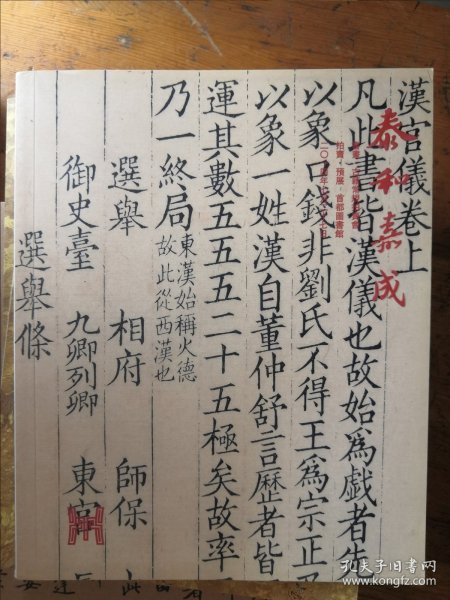 漢官儀卷上
凡此書皆漢儀也故始爲戲者先
以象口錢非劉氏不得王爲宗正
以象一姓漢自董仲舒言歷者皆
運其數五五五二十五極矣故率
乃一終局東漢始稱火德
故此從西漢也
選舉 相府 師保
御史臺 九卿列卿 東宮
選舉條
泰和嘉成
拍賣·預展 首都圖書館
孔夫子旧书网
kongfz.com